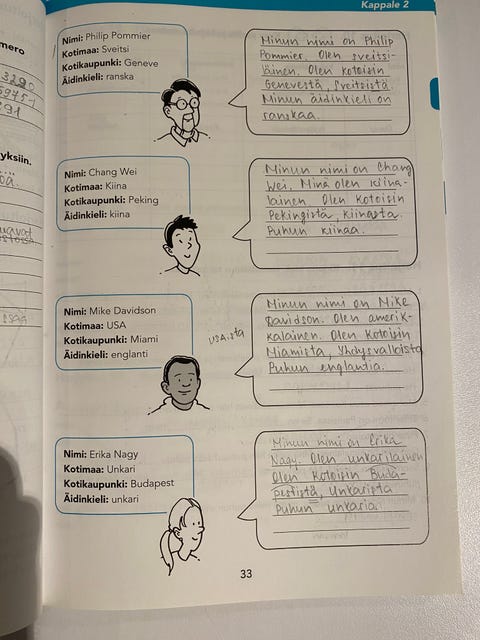 Kappale 2
mero
3290
yksiin.
Nimi: Philip Pommier
Kotimaa: Sveitsi
Kotikaupunki: Geneve
Äidinkieli: ranska
Minun nimi on Philip
Pommier. Olen sveitsi-
läinen. Olen kotoisin
Genevestä, Sveitsistä.
Minun äidinkieli on
ranskaa.
Nimi: Chang Wei
Kotimaa: Kiina
Kotikaupunki: Peking
Äidinkieli: kiina
Minun nimi on Chang
Wei. Minä olen kiina-
lainen. Olen kotoisin
Pekingistä, Kiinasta.
Puhun kiinaa.
Nimi: Mike Davidson
Kotimaa: USA
Kotikaupunki: Miami
Äidinkieli: englanti
USA:sta
Minun nimi on Mike
Davidson. Olen amerik-
kalainen. Olen kotoisin
Miamista, Yhdysvalloista
Puhun englantia.
Nimi: Erika Nagy
Kotimaa: Unkari
Kotikaupunki: Budapest
Äidinkieli: unkari
Minun nimi on Erika
Nagy. Olen unkarilainen
Olen kotoisin Buda-
pestistä, Unkarista
Puhun unkaria.
33